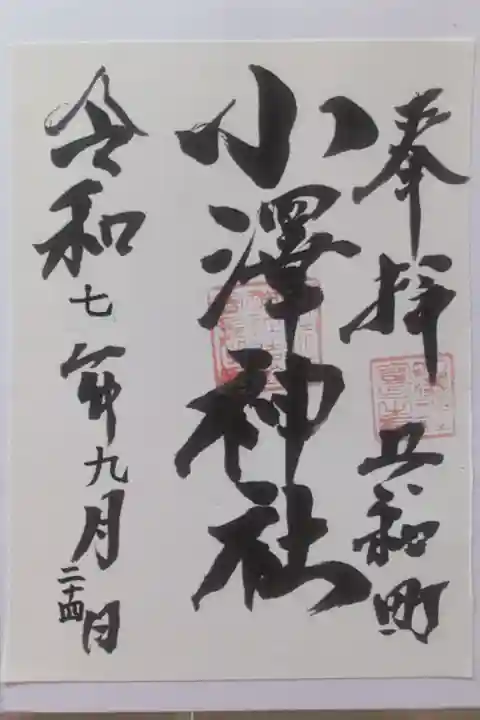 奉拝
町
小澤神社
令和七年九月二十四日